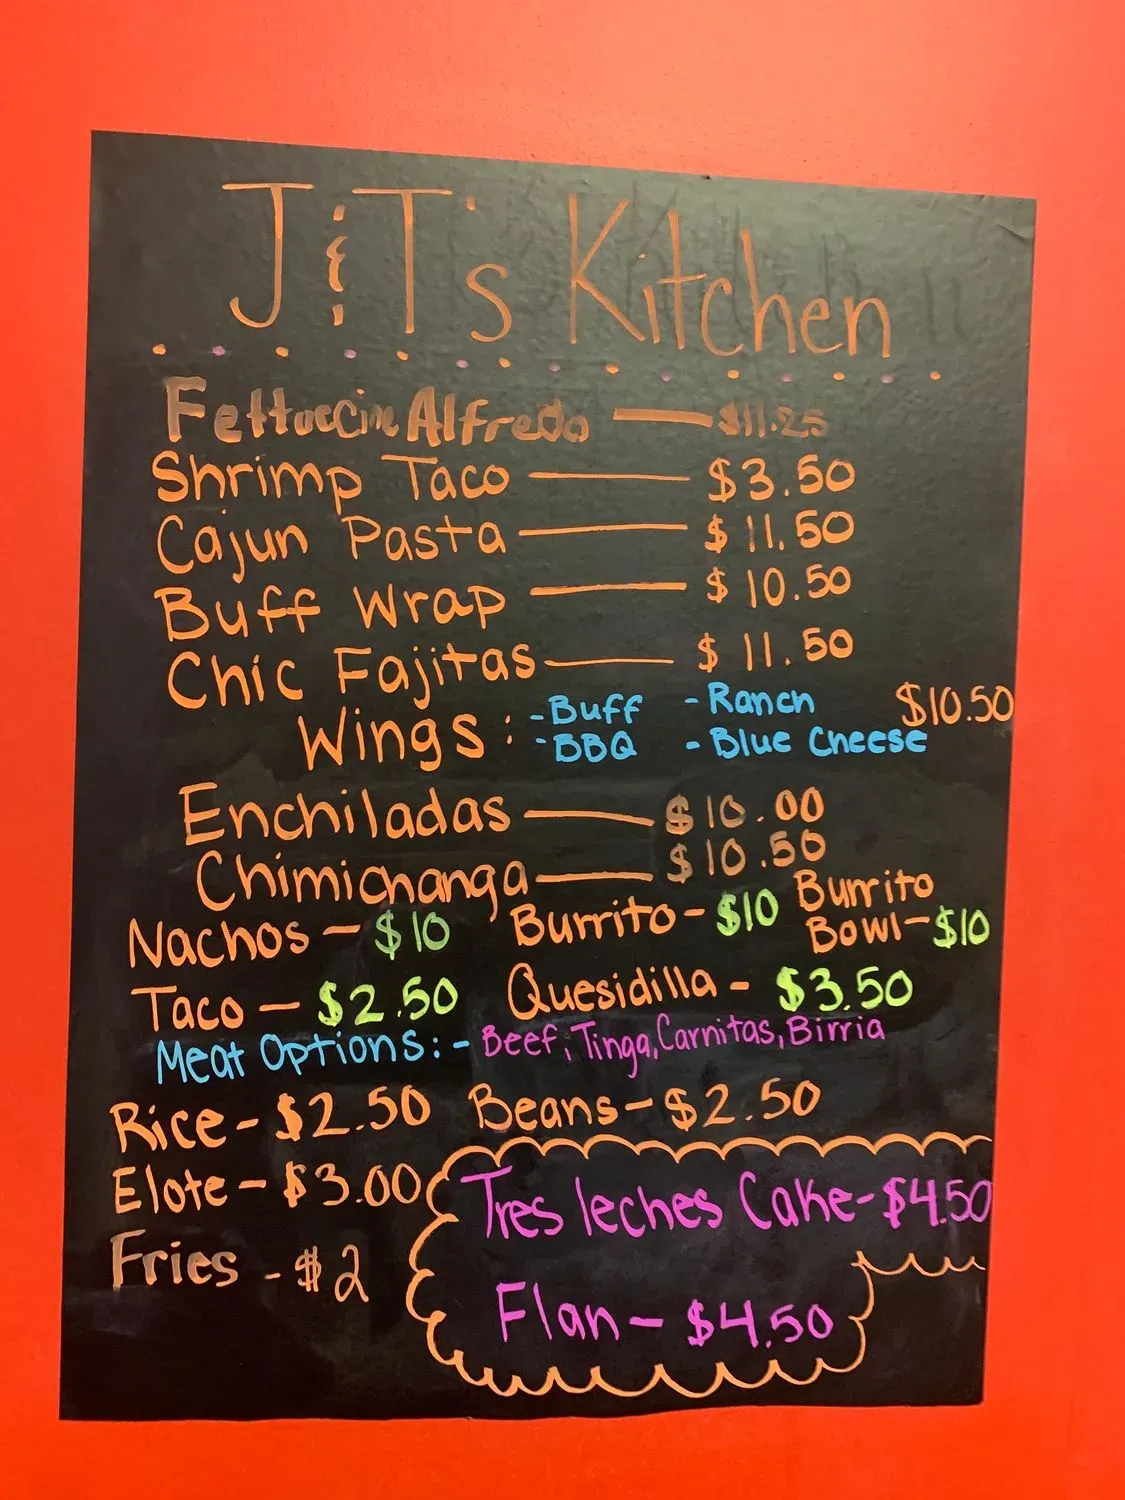 J & T's Kitchen
Fettuccine Alfredo — $11.25
Shrimp Taco — $3.50
Cajun Pasta — $11.50
Buff Wrap — $10.50
Chic Fajitas — $11.50
Wings: -Buff -Ranch $10.50
-BBQ -Blue Cheese
Enchiladas — $10.00
Chimichanga — $10.50
Nachos - $10 Burrito - $10 Burrito Bowl - $10
Taco - $2.50 Quesidilla - $3.50
Meat Options: - Beef, Tinga, Carnitas, Birria
Rice - $2.50 Beans - $2.50
Elote - $3.00 Tres leches Cake - $4.50
Fries - $2
Flan - $4.50